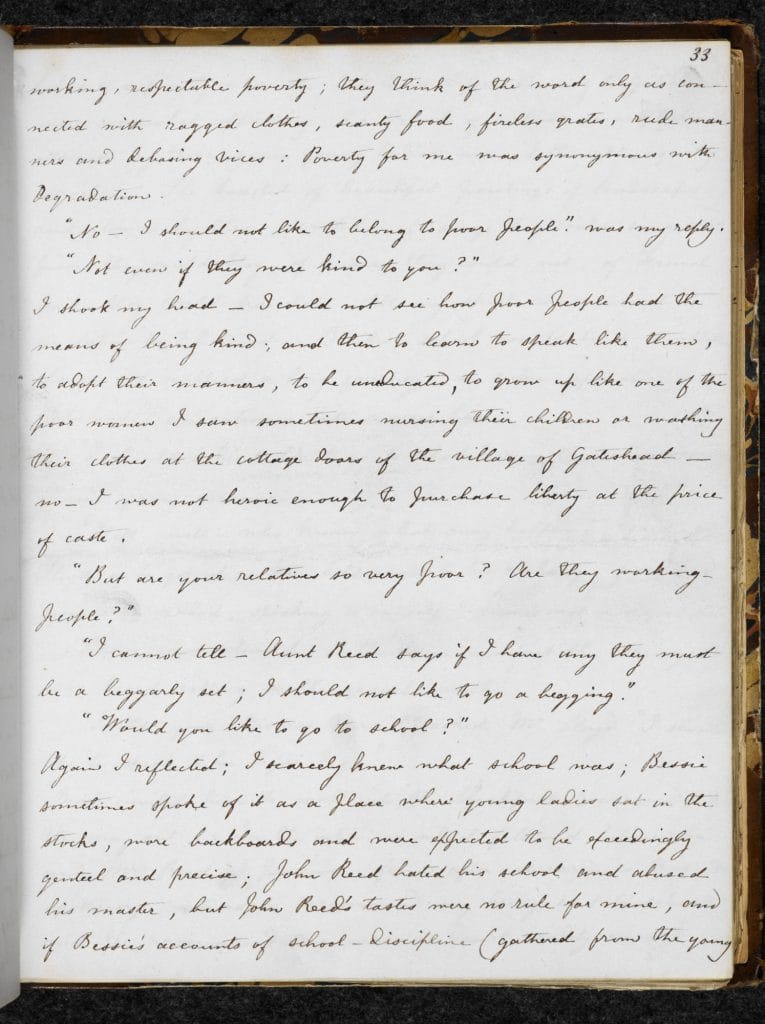 33
working, respectable poverty; they think of the word only as con-
nected with ragged clothes, scanty food, fireless grates, rude man-
ners and debasing vices: Poverty for me was synonymous with
Degradation.
"No — I should not like to belong to poor people." was my reply.
"Not even if they were kind to you?"
I shook my head — I could not see how poor people had the
means of being kind; and then to learn to speak like them,
to adopt their manners, to be uneducated, to grow up like one of the
poor women I saw sometimes nursing their children or washing
their clothes at the cottage doors of the village of Gateshead —
no — I was not heroic enough to purchase liberty at the price
of caste.
"But are your relatives so very poor? Are they working-
people?"
"I cannot tell — Aunt Reed says if I have any they must
be a beggarly set; I should not like to go a begging."
"Would you like to go to school?"
Again I reflected; I scarcely knew what school was; Bessie
sometimes spoke of it as a place where young ladies sat in the
stocks, wore backboards and were expected to be exceedingly
genteel and precise; John Reed hated his school and abused
his master, but John Reed's tastes were no rule for mine, and
if Bessie's accounts of school-discipline (gathered from the young